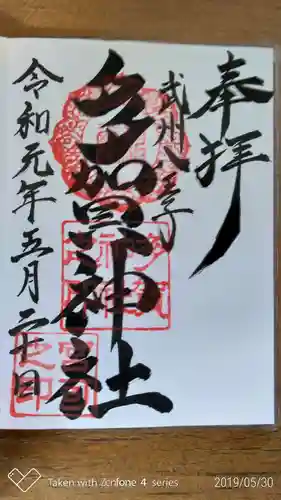 奉拝
武州八王子
多賀神社
令和元年五月二十日
Taken with Zenfone 4 series
2019/05/30